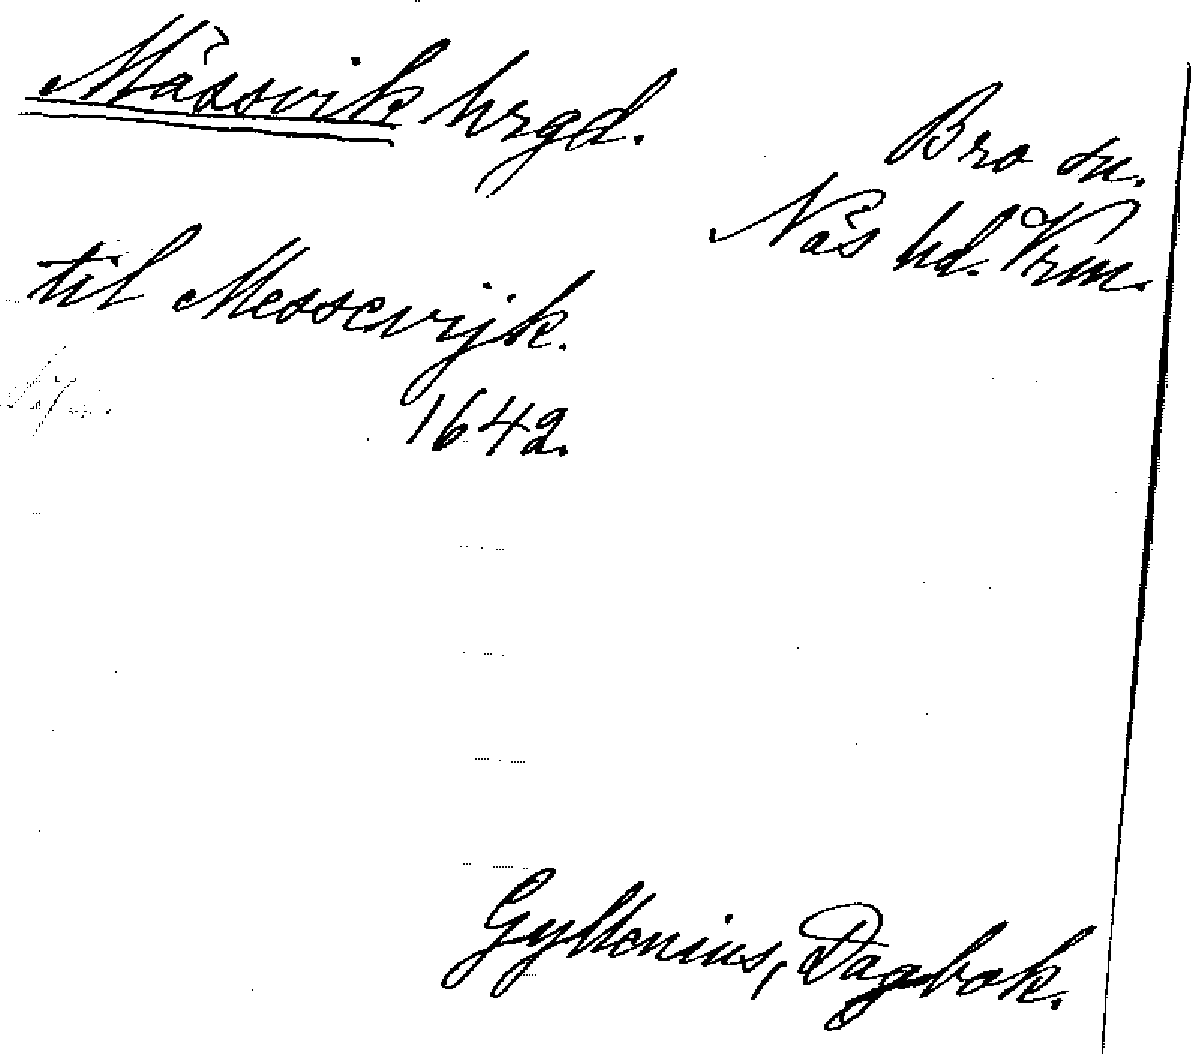 Måssvik hrgd.
Bro sn.
Näs hd. Vrm.
til Messevijk.
1642.
Gyllenius, Dagbok.